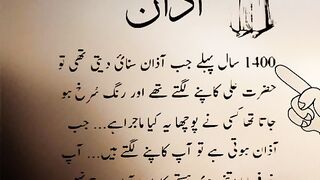 آذان
1400 سال پہلے جب آذان سنائ دیتی تھی تو
حضرت علی کاپنے لگتے تھے اور رنگ سُرخ ہو
جاتا تھا کسی نے پوچھا یہ کیا ماجرا ہے... جب
آذان ہوتی ہے تو آپ کاپنے لگتے ہیں... آپ